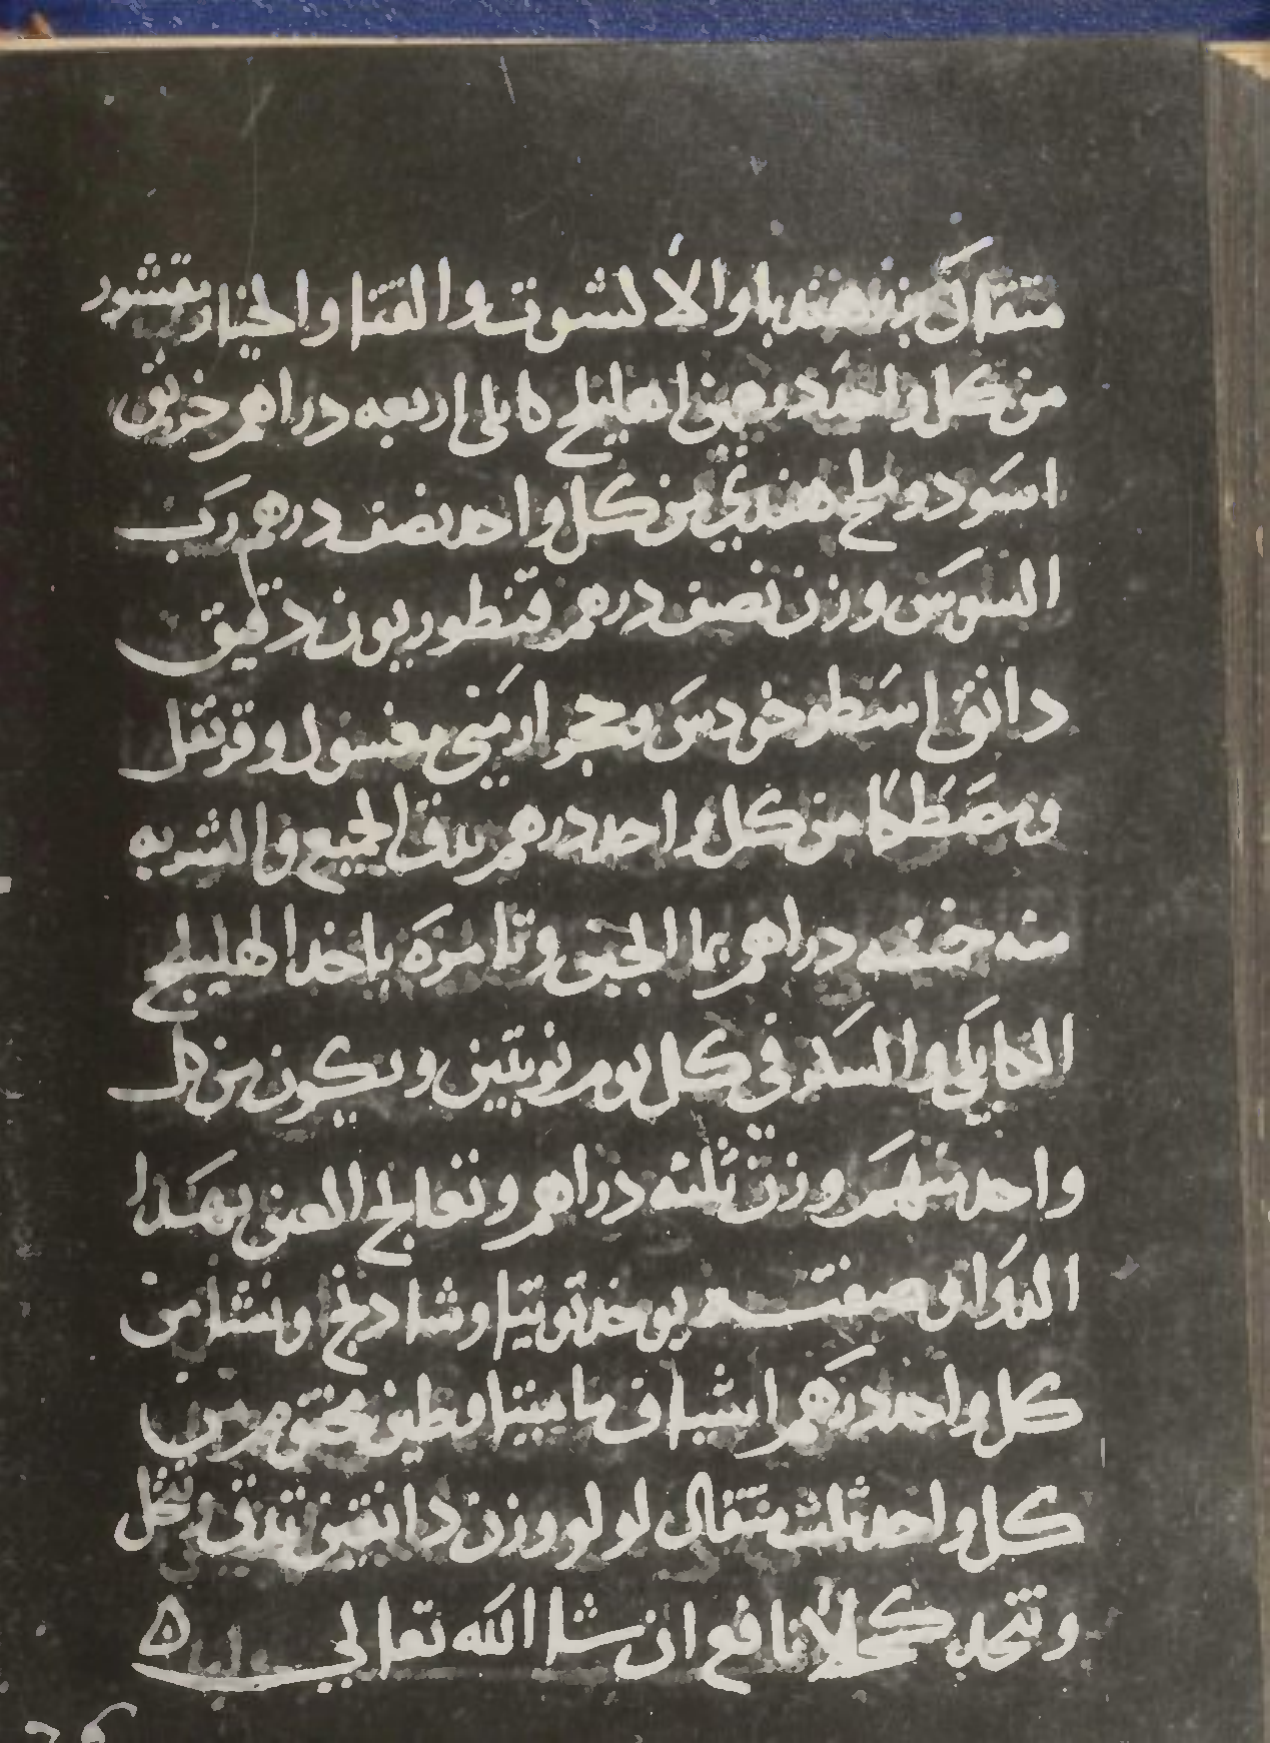 مثقال بزر هندبا والاكشوت والقثا والخيار مقشور
من كل واحد درهمين اهليلج كابلى اربعه دراهم خربق
اسود وملح هندي من كل واحد نصف درهم رب
السوس وزن نصف درهم قنطوريون دقيق
دانق اسطوخودس وحجر ارمنى مغسول وقرنفل
ومصطكا من كل واحد درهم يدق الجميع والشربه
منه خمسه دراهم بما الجبن وتامره باخذ الهليلج
الكابلي والسكر في كل يوم نوبتين ويكون من كل
واحد منهم وزن ثلثه دراهم وتعالج العين بهدا
الدوا وصفتــه يوخد توتيا وشادنج ونشا من
كل واحد درهم اشياف ماميثا وطين مختوم من
كل واحد ثلث مثقال لولو وزن دانقين تدق وتنخل
وتتخد كحلا نافع ان شا الله تعالى ه